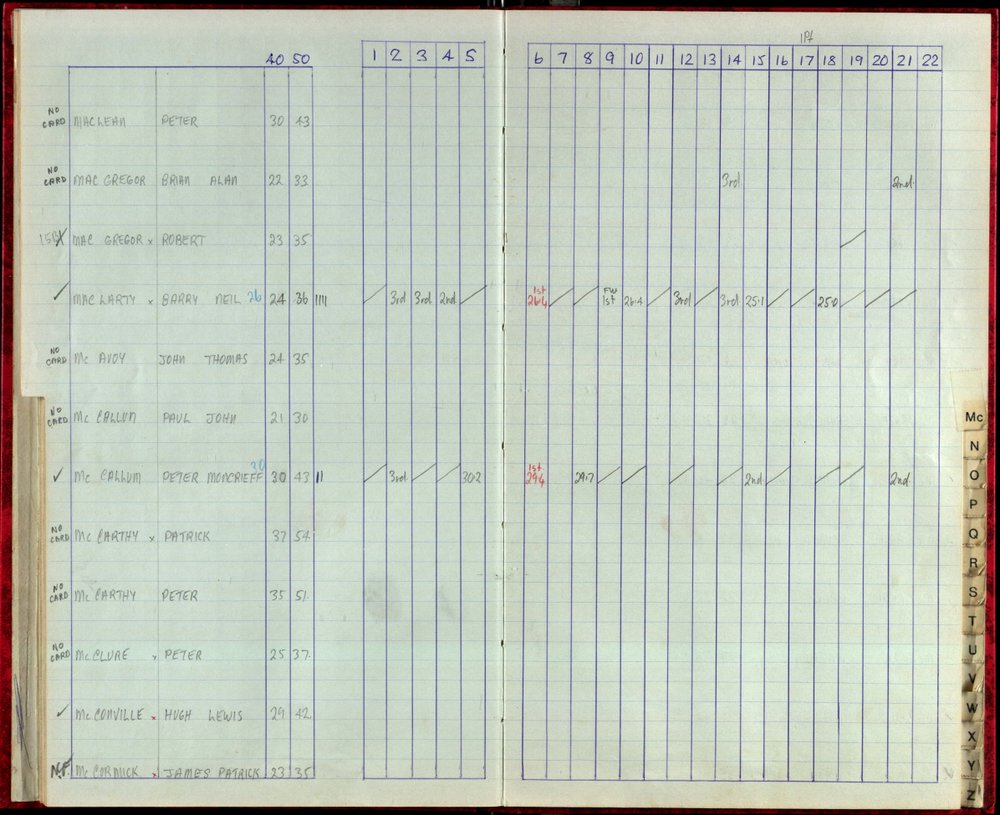 1Pt
40 50 1 2 3 4 5 6 7 8 9 10 11 12 13 14 15 16 17 18 19 20 21 22
NO CARD MACLEAN PETER 30 43
NO CARD MAC GREGOR BRIAN ALAN 22 33 3rd 2nd.
MAC GREGOR x ROBERT 23 35 /
✓ MAC LARTY x BARRY NEIL 26 24 36 IIII / 3rd 3rd 2nd / 1st 26.4 / / FW 1st 26.4 / 3rd / 3rd 25.1 / / 25.0 / / /
NO CARD Mc AVOY JOHN THOMAS 24 35
NO CARD Mc CALLUM PAUL JOHN 21 30
✓ Mc CALLUM PETER MONCRIEFF 30 30 43 II / 3rd / / 30.2 1st 29.4 29.7 / / / / 2nd / / / 2nd
NO CARD Mc CARTHY x PATRICK 37 54
NO CARD Mc CARTHY PETER 35 51.
NO CARD Mc CLURE x PETER 25 37.
✓ Mc CONVILLE x HUGH LEWIS 29 42
N.F. Mc CORMICK x JAMES PATRICK 23 35
Mc
N
O
P
Q
R
S
T
U
V
W
X
Y
Z